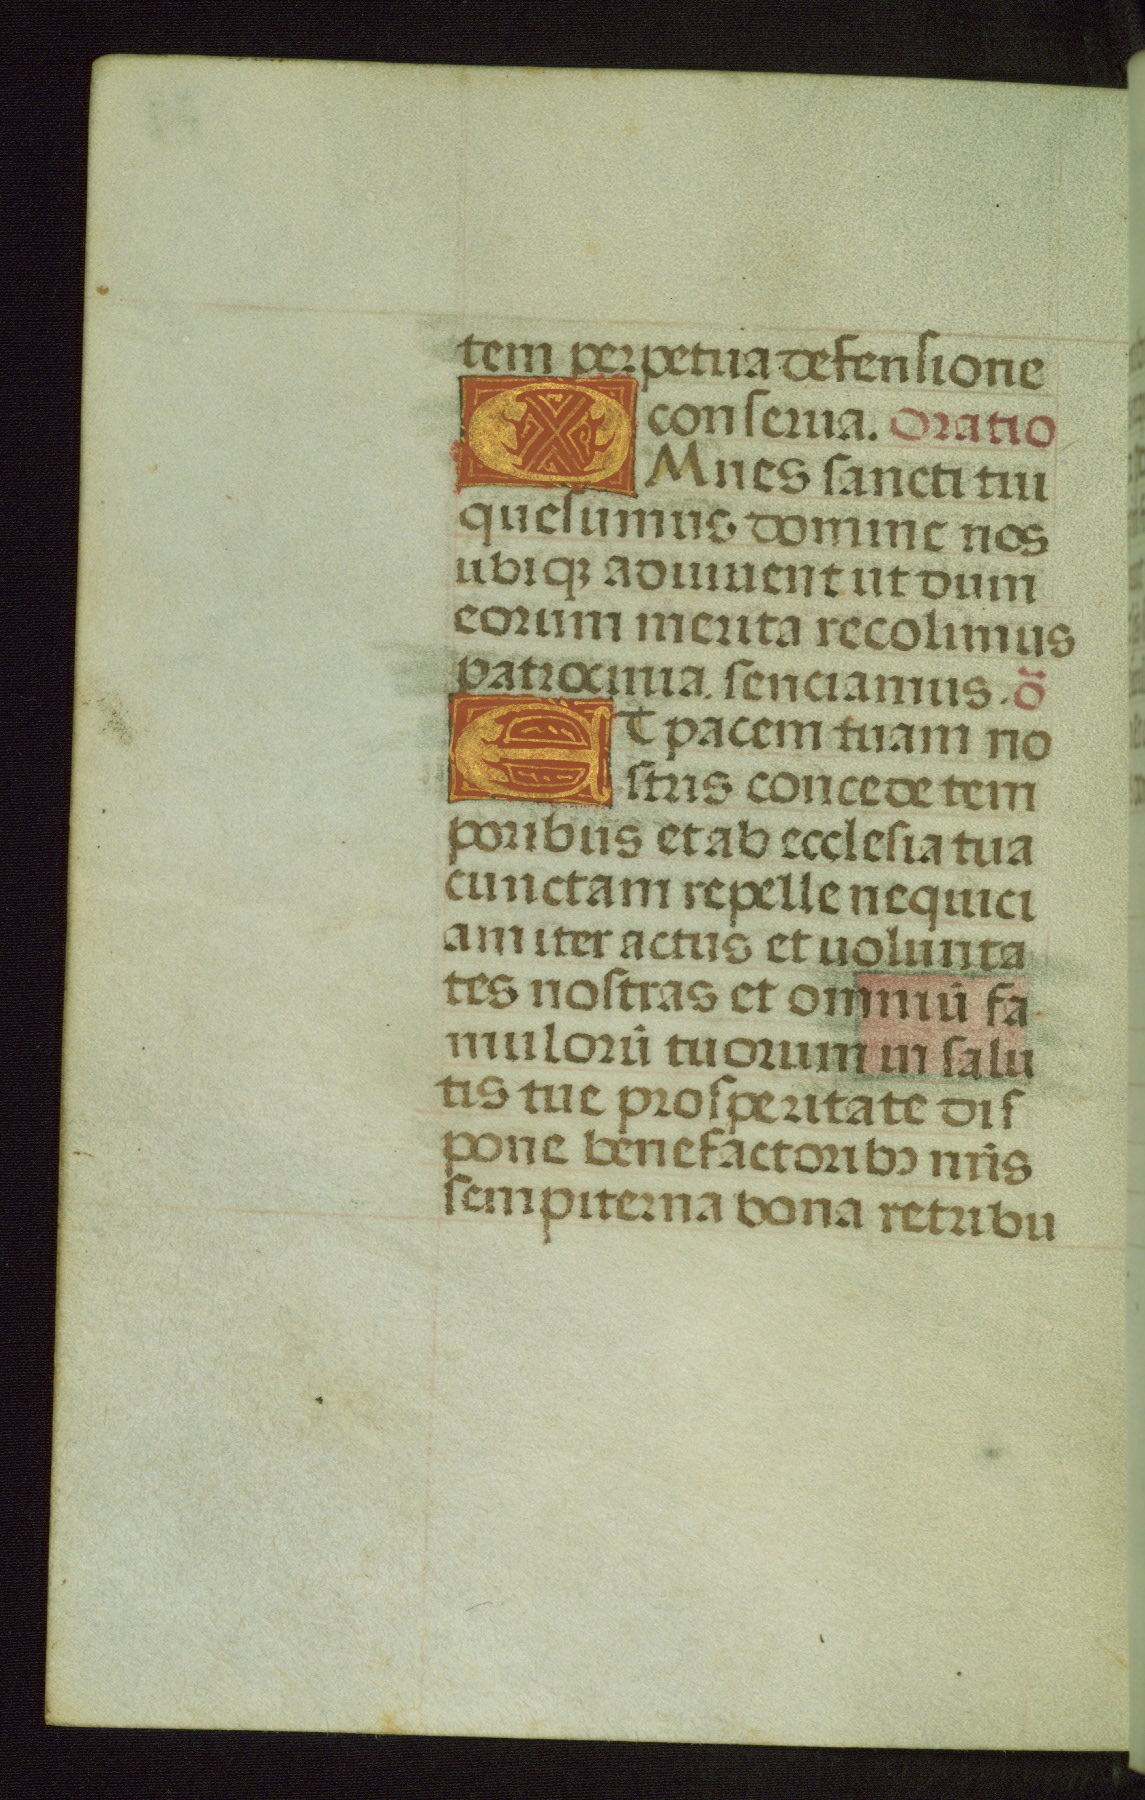 tem perpetua defensione
conserua. Oratio
OMnes sancti tui
quesumus domine nos
ubiqꝫ adiuuent ut dum
eorum merita recolimus
patrocinia senciamus. õ
ET pacem tuam no
stris concede tem
poribus et ab ecclesia tua
cunctam repelle nequici
am iter actus et uolunta
tes nostras et omniũ fa
mulorũ tuorum in salu
tis tue prosperitate dis
pone benefactoribꝰ nr̃is
sempiterna bona retribu